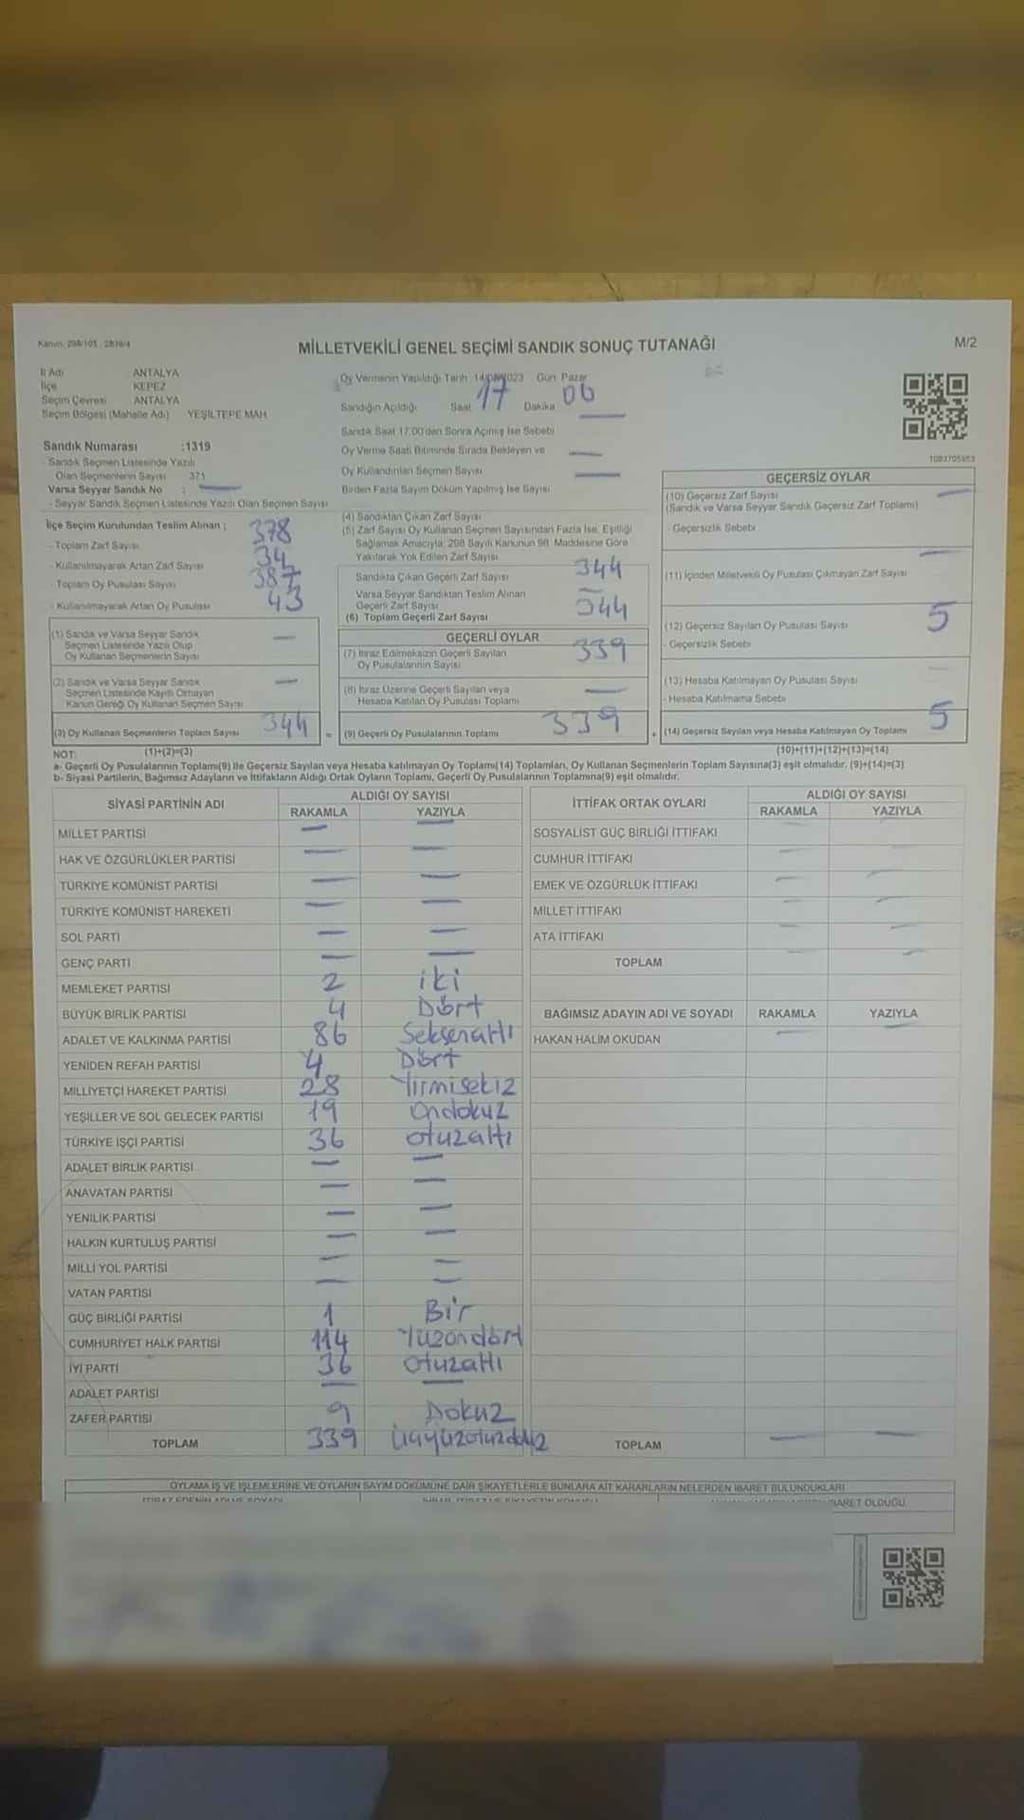 Kanun: 298/105 - 2839/4
MİLLETVEKİLİ GENEL SEÇİMİ SANDIK SONUÇ TUTANAĞI
M/2
İl Adı ANTALYA
İlçe KEPEZ
Seçim Çevresi ANTALYA
Seçim Bölgesi (Mahalle Adı) YEŞİLTEPE MAH
Sandık Numarası :1319
- Sandık Seçmen Listesinde Yazılı
Olan Seçmenlerin Sayısı 371
Varsa Seyyar Sandık No :
- Seyyar Sandık Seçmen Listesinde Yazılı Olan Seçmen Sayısı
İlçe Seçim Kurulundan Teslim Alınan ;
- Toplam Zarf Sayısı 378
- Kullanılmayarak Artan Zarf Sayısı 34
- Toplam Oy Pusulası Sayısı 387
- Kullanılmayarak Artan Oy Pusulası 43
(1) Sandık ve Varsa Seyyar Sandık
Seçmen Listesinde Yazılı Olup
Oy Kullanan Seçmenlerin Sayısı —
(2) Sandık ve Varsa Seyyar Sandık
Seçmen Listesinde Kayıtlı Olmayan
Kanun Gereği Oy Kullanan Seçmen Sayısı —
(3) Oy Kullanan Seçmenlerin Toplam Sayısı 344
Oy Vermenin Yapıldığı Tarih 14/05/2023 Gün Pazar
Sandığın Açıldığı Saat 17 Dakika 00
Sandık Saat 17:00'den Sonra Açılmış İse Sebebi —
Oy Verme Saati Bitiminde Sırada Bekleyen ve —
Oy Kullandırılan Seçmen Sayısı —
Birden Fazla Sayım Döküm Yapılmış İse Sayısı
(4) Sandıktan Çıkan Zarf Sayısı
(5) Zarf Sayısı Oy Kullanan Seçmen Sayısından Fazla İse, Eşitliği
Sağlamak Amacıyla; 298 Sayılı Kanunun 98. Maddesine Göre
Yakılarak Yok Edilen Zarf Sayısı
Sandıkta Çıkan Geçerli Zarf Sayısı 344
Varsa Seyyar Sandıktan Teslim Alınan
Geçerli Zarf Sayısı —
(6) Toplam Geçerli Zarf Sayısı 344
GEÇERLİ OYLAR
(7) İtiraz Edilmeksizin Geçerli Sayılan
Oy Pusulalarının Sayısı 339
(8) İtiraz Üzerine Geçerli Sayılan veya
Hesaba Katılan Oy Pusulası Toplamı —
= (9) Geçerli Oy Pusulalarının Toplamı 339
1083705953
GEÇERSİZ OYLAR
(10) Geçersiz Zarf Sayısı —
(Sandık ve Varsa Seyyar Sandık Geçersiz Zarf Toplamı)
- Geçersizlik Sebebi
(11) İçinden Milletvekili Oy Pusulası Çıkmayan Zarf Sayısı —
(12) Geçersiz Sayılan Oy Pusulası Sayısı 5
- Geçersizlik Sebebi
(13) Hesaba Katılmayan Oy Pusulası Sayısı —
- Hesaba Katılmama Sebebi
+ (14) Geçersiz Sayılan veya Hesaba Katılmayan Oy Toplamı 5
NOT: (1)+(2)=(3) (10)+(11)+(12)+(13)=(14)
a- Geçerli Oy Pusulalarının Toplamı(9) ile Geçersiz Sayılan veya Hesaba katılmayan Oy Toplamı(14) Toplamları, Oy Kullanan Seçmenlerin Toplam Sayısına(3) eşit olmalıdır. (9)+(14)=(3)
b- Siyasi Partilerin, Bağımsız Adayların ve İttifakların Aldığı Ortak Oyların Toplamı, Geçerli Oy Pusulalarının Toplamına(9) eşit olmalıdır.
SİYASİ PARTİNİN ADI ALDIĞI OY SAYISI
RAKAMLA YAZIYLA
MİLLET PARTİSİ — —
HAK VE ÖZGÜRLÜKLER PARTİSİ — —
TÜRKİYE KOMÜNİST PARTİSİ — —
TÜRKİYE KOMÜNİST HAREKETİ — —
SOL PARTİ — —
GENÇ PARTİ — —
MEMLEKET PARTİSİ 2 iki
BÜYÜK BİRLİK PARTİSİ 4 Dört
ADALET VE KALKINMA PARTİSİ 86 Seksenaltı
YENİDEN REFAH PARTİSİ 4 Dört
MİLLİYETÇİ HAREKET PARTİSİ 28 Yirmisekiz
YEŞİLLER VE SOL GELECEK PARTİSİ 19 Ondokuz
TÜRKİYE İŞÇİ PARTİSİ 36 Otuzaltı
ADALET BİRLİK PARTİSİ — —
ANAVATAN PARTİSİ — —
YENİLİK PARTİSİ — —
HALKIN KURTULUŞ PARTİSİ — —
MİLLİ YOL PARTİSİ — —
VATAN PARTİSİ — —
GÜÇ BİRLİĞİ PARTİSİ 1 Bir
CUMHURİYET HALK PARTİSİ 114 Yüzondört
İYİ PARTİ 36 Otuzaltı
ADALET PARTİSİ — —
ZAFER PARTİSİ 9 Dokuz
TOPLAM 339 Üçyüzotuzdokuz
İTTİFAK ORTAK OYLARI ALDIĞI OY SAYISI
RAKAMLA YAZIYLA
SOSYALİST GÜÇ BİRLİĞİ İTTİFAKI
CUMHUR İTTİFAKI — —
EMEK VE ÖZGÜRLÜK İTTİFAKI — —
MİLLET İTTİFAKI — —
ATA İTTİFAKI — —
TOPLAM — —
BAĞIMSIZ ADAYIN ADI VE SOYADI RAKAMLA YAZIYLA
HAKAN HALİM OKUDAN —
TOPLAM — —
OYLAMA İŞ VE İŞLEMLERİNE VE OYLARIN SAYIM DÖKÜMÜNE DAİR ŞİKAYETLERLE BUNLARA AİT KARARLARIN NELERDEN İBARET BULUNDUKLARI
İBARET OLDUĞU